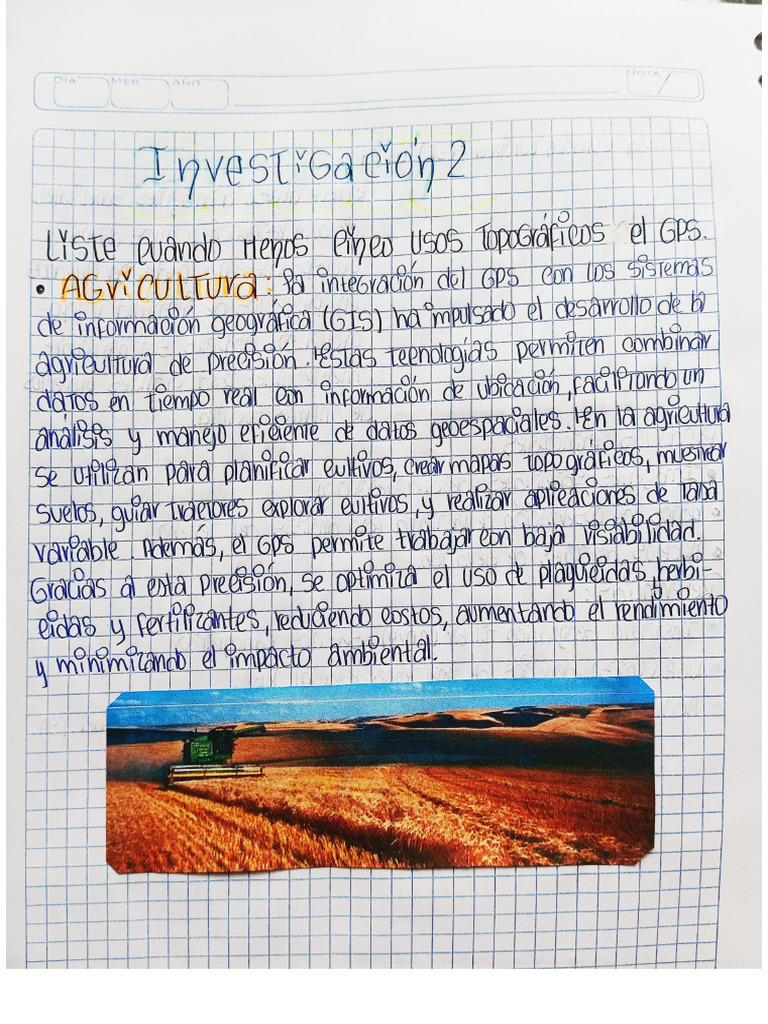 DÍA MES AÑO NOTA
Investigación 2
Liste cuando menos cinco usos topográficos el GPS.
• AGRICULTURA: La integración del GPS con los sistemas
de información geográfica (GIS) ha impulsado el desarrollo de la
agricultura de precisión. Estas tecnologías permiten combinar
datos en tiempo real con información de ubicación, facilitando un
análisis y manejo eficiente de datos geoespaciales. En la agricultura
se utilizan para planificar cultivos, crear mapas topográficos, muestrear
suelos, guiar tractores explorar cultivos, y realizar aplicaciones de tasa
variable. Además, el GPS permite trabajar con baja visiabilidad.
Gracias a esta precisión, se optimiza el uso de plaguicidas, herbi-
cidas y fertilizantes, reduciendo costos, aumentando el rendimiento
y minimizando el impacto ambiental.